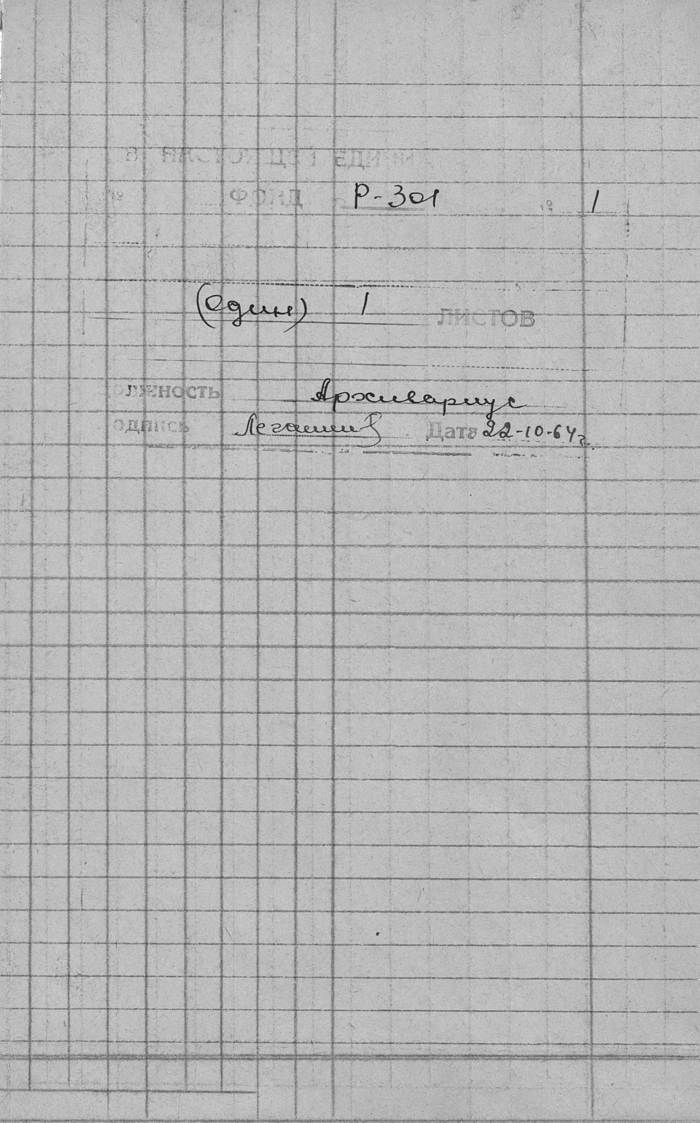 В НАСТОЯЩЕЙ ЕДИНИ
№ ФОНД Р-301 № 1
(один) 1 ЛИСТОВ
олжность Архивариус
одпись Дата 22-10-64г.